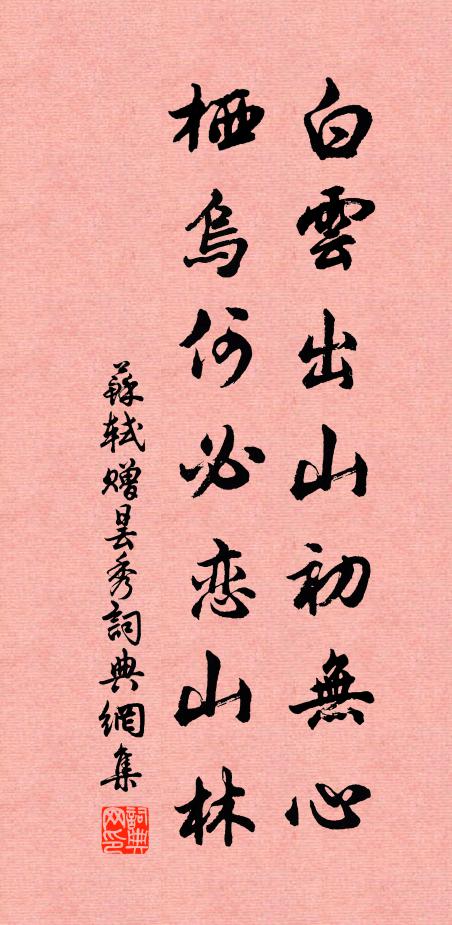 白雲出山初無心
栖烏何必恋山林
蘇軾贈曇秀詞典網集
詞典网印